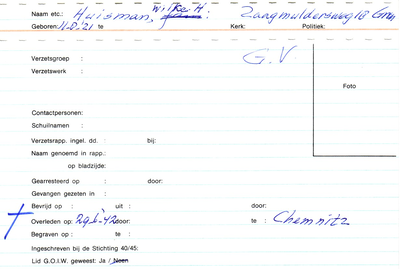 Naam etc.: Huisman, Wilke H. Zaagmuldersweg 18 Gron
Geboren: 11.8.'21 te Kerk: Politiek:
G.V.
Verzetsgroep :
Verzetswerk :
Foto
Contactpersonen:
Schuilnamen :
Verzetsrapp. ingel. dd. : bij:
Naam genoemd in rapp.:
op bladzijde:
Gearresteerd op : door:
Gevangen gezeten in :
Bevrijd op : uit : door:
Overleden op: 29.6-'42 door: te : Chemnitz
Begraven op : te :
Ingeschreven bij de Stichting 40/45:
Lid G.O.I.W. geweest: Ja / Neen